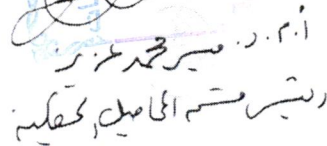 أ.م.د. ميسر محمد عزيز
رئيس قسم المحاصيل الحقلية